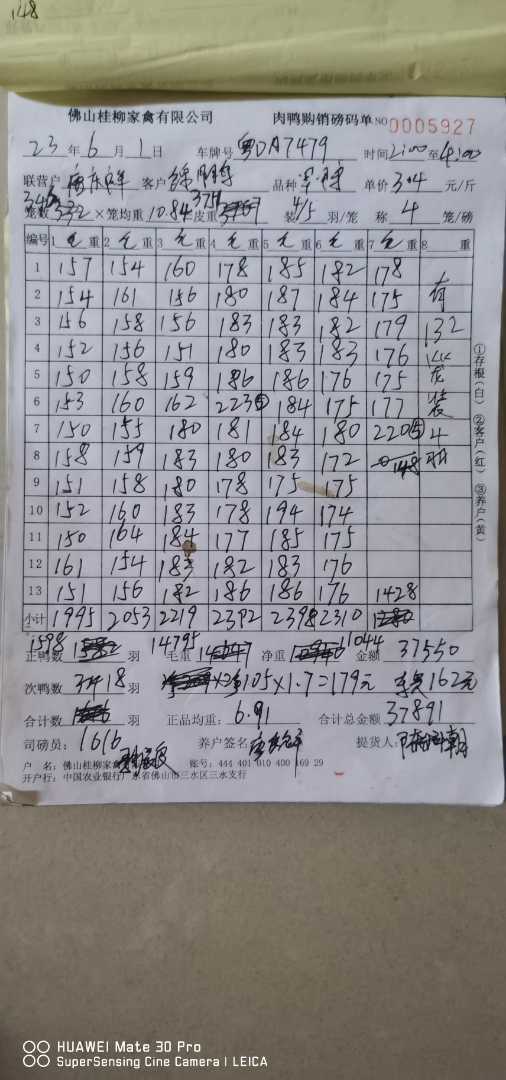 148
佛山桂柳家禽有限公司 肉鸭购销磅码单 NO 0005927
23 年 6 月 1 日 车牌号 粤DA7479 时间 2:00 至 4:00
联营户 客户 品种 单价 3.4 元/斤
346
笼数 332 × 笼均重 10.84 皮重 3751 装 4/5 羽/笼 称 4 笼/磅
编号 1 毛 重 2 毛 重 3 毛 重 4 毛 重 5 毛 重 6 毛 重 7 毛 重 8 重
1 157 154 160 178 185 182 178
2 154 161 156 180 187 184 175 有
3 156 158 156 183 183 182 179 132
4 152 156 151 180 183 183 176
5 150 158 159 186 186 176 175 笼
6 153 160 162 223⑤ 184 175 177 装
7 150 155 180 181 184 180 220⑤ 4
8 158 159 183 180 183 172 148 羽
9 151 158 180 178 175 175
10 152 160 183 178 194 174
11 150 164 184 177 185 175
12 161 154 183 182 183 176
13 151 156 182 186 186 176 1428
小计 1995 2053 2219 2392 2398 2310
①存根(白) ②客户(红) ③养户(黄)
正鸭数 1598 羽 毛重 14795 净重 11044 金额 37550
次鸭数 18 羽 105×1.7=179元 162元
合计数 羽 正品均重: 6.91 合计总金额 37891
司磅员: 1616 养户签名: 提货人:
户 名: 佛山桂柳家禽 账号: 444 401 010 400 169 29
开户行: 中国农业银行广东省佛山市三水区三水支行
HUAWEI Mate 30 Pro
SuperSensing Cine Camera | LEICA